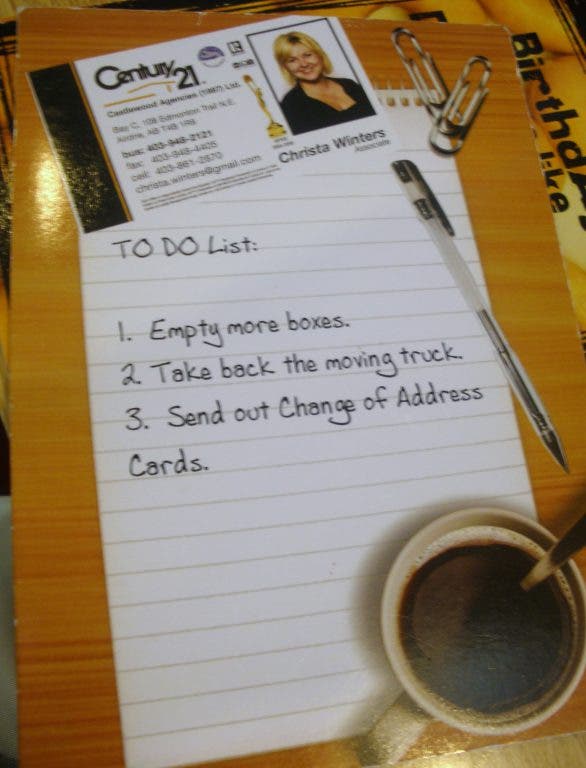 Century 21
Castlewood Agencies (1987) Ltd.
Bay C, 109 Edmonton Trail N.E.
Airdrie, AB T4B 1R9
bus: 403-948-2121
fax: 403-948-4405
christa.winters@gmail.com
Christa Winters
Associate
TO DO List:
1. Empty more boxes.
2. Take back the moving truck.
3. Send out Change of Address
Cards.
Birthday
like